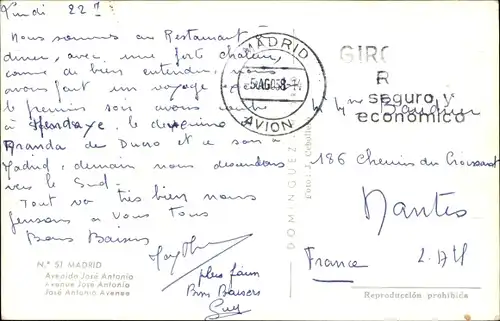 Lundi 22 h
Nous sommes au Restaurant à
dîner, avec une forte chaleur,
comme de bien entendu, nous
avons fait un voyage
le premier soir avons
à Hendaye, le deuxième
Aranda de Duero et ce soir à
Madrid, demain nous descendons
vers le Sud.
Tout va très bien nous
pensons à vous tous
Bons Baisers
plus faim
Bons Baisers
Guy
N.º 51 MADRID
Avenida José Antonio
Avenue José Antonio
José Antonio Avenee
DOMINGUEZ
MADRID
5 AGO 58
AVION
GIRO
seguro y
económico
186 Chemin du Croissant
Nantes
France
Reproducción prohibida